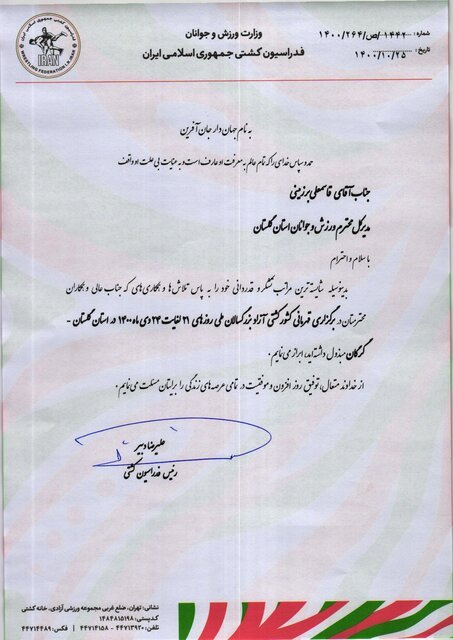 وزارت ورزش و جوانان
فدراسیون کشتی جمهوری اسلامی ایران
شماره: ۱۴۰۰/۲۶۴/ص/۱۴۴۲
تاریخ: ۱۴۰۰/۱۰/۲۵
IRAN
WRESTLING FEDERATION I.R.IRAN
به نام جهان دار جان آفرین
حمد و سپاس خدای را که نام عالم به معرفت او عارف است و به عنایت بی علت او واقف
جناب آقای قاسمعلی برزمینی
مدیرکل محترم ورزش و جوانان استان گلستان
با سلام و احترام
بدینوسیله شایسته ترین مراتب تشکر و قدردانی خود را به پاس تلاش ها و همکاری های که جناب عالی و همکاران
محترمتان در برگزاری قهرمانی کشور کشتی آزاد بزرگسالان طی روزهای ۲۱ لغایت ۲۴ دی ماه ۱۴۰۰ در استان گلستان -
گرگان مبذول داشته اید، ابراز می نمایم.
از خداوند متعال، توفیق روز افزون و موفقیت در تمامی عرصه های زندگی را برایتان مسئلت می نمایم.
علیرضا دبیر
رئیس فدراسیون کشتی
نشانی: تهران، ضلع غربی مجموعه ورزشی آزادی، خانه کشتی
کدپستی: ۱۴۸۴۸۱۵۱۹۸
تلفن: ۴۴۷۱۳۹۲۰ - ۴۴۷۱۴۱۵۸ | فکس: ۴۴۷۱۴۴۸۹